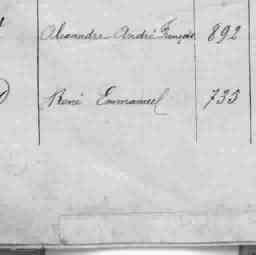 Alexandre André François 892
René Emmanuel 735